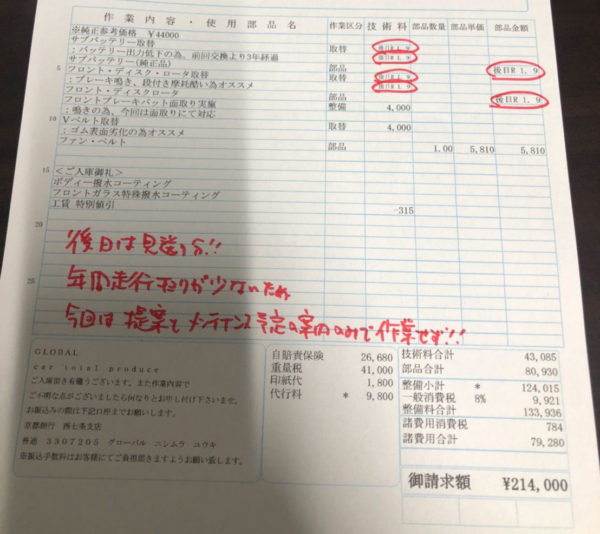 作業内容・使用部品名 作業区分 技術料 部品数量 部品単価 部品金額
※純正参考価格 ¥44000
サブバッテリー取替 取替 後日R1.9
:バッテリー出力低下の為、前回交換より3年経過
サブバッテリー(純正品) 部品 後日R1.9 後日R1.9
5 フロント・ディスク・ロータ取替 取替 後日R1.9
:ブレーキ鳴き、段付き摩耗酷い為オススメ
フロント・ディスクロータ 部品 後日R1.9 後日R1.9
フロントブレーキパット面取り実施 整備 4,000
:鳴きの為、今回は面取りにて対応
10 Vベルト取替 取替 4,000
:ゴム表面劣化の為オススメ
ファン・ベルト 部品 1.00 5,810 5,810
15 <ご入庫御礼>
ボディー撥水コーティング
フロントガラス特殊撥水コーティング
工賃 特別値引 -315
20
後日は見送り分!!
年間走行距離が少ないため
25
今回は提案とメンテナンス予定の案内のみで作業せず!!
GLOBAL
car total produce
ご入庫頂き有難うございます。また作業内容で
ご不明な点がございましたら何なりとお申し付け下さいませ。
お振込みの際は下記口座までお願いします。
京都銀行 西七条支店
普通 3307205 グローバル ニシムラ ユウキ
※振込手数料はお客様にてご負担頂きますようお願い致します。
自賠責保険 26,680
重量税 41,000
印紙代 1,800
代行料 * 9,800
技術料合計 43,085
部品合計 80,930
整備小計 * 124,015
一般消費税 8% 9,921
整備料合計 133,936
諸費用消費税 784
諸費用合計 79,280
御請求額 ¥214,000